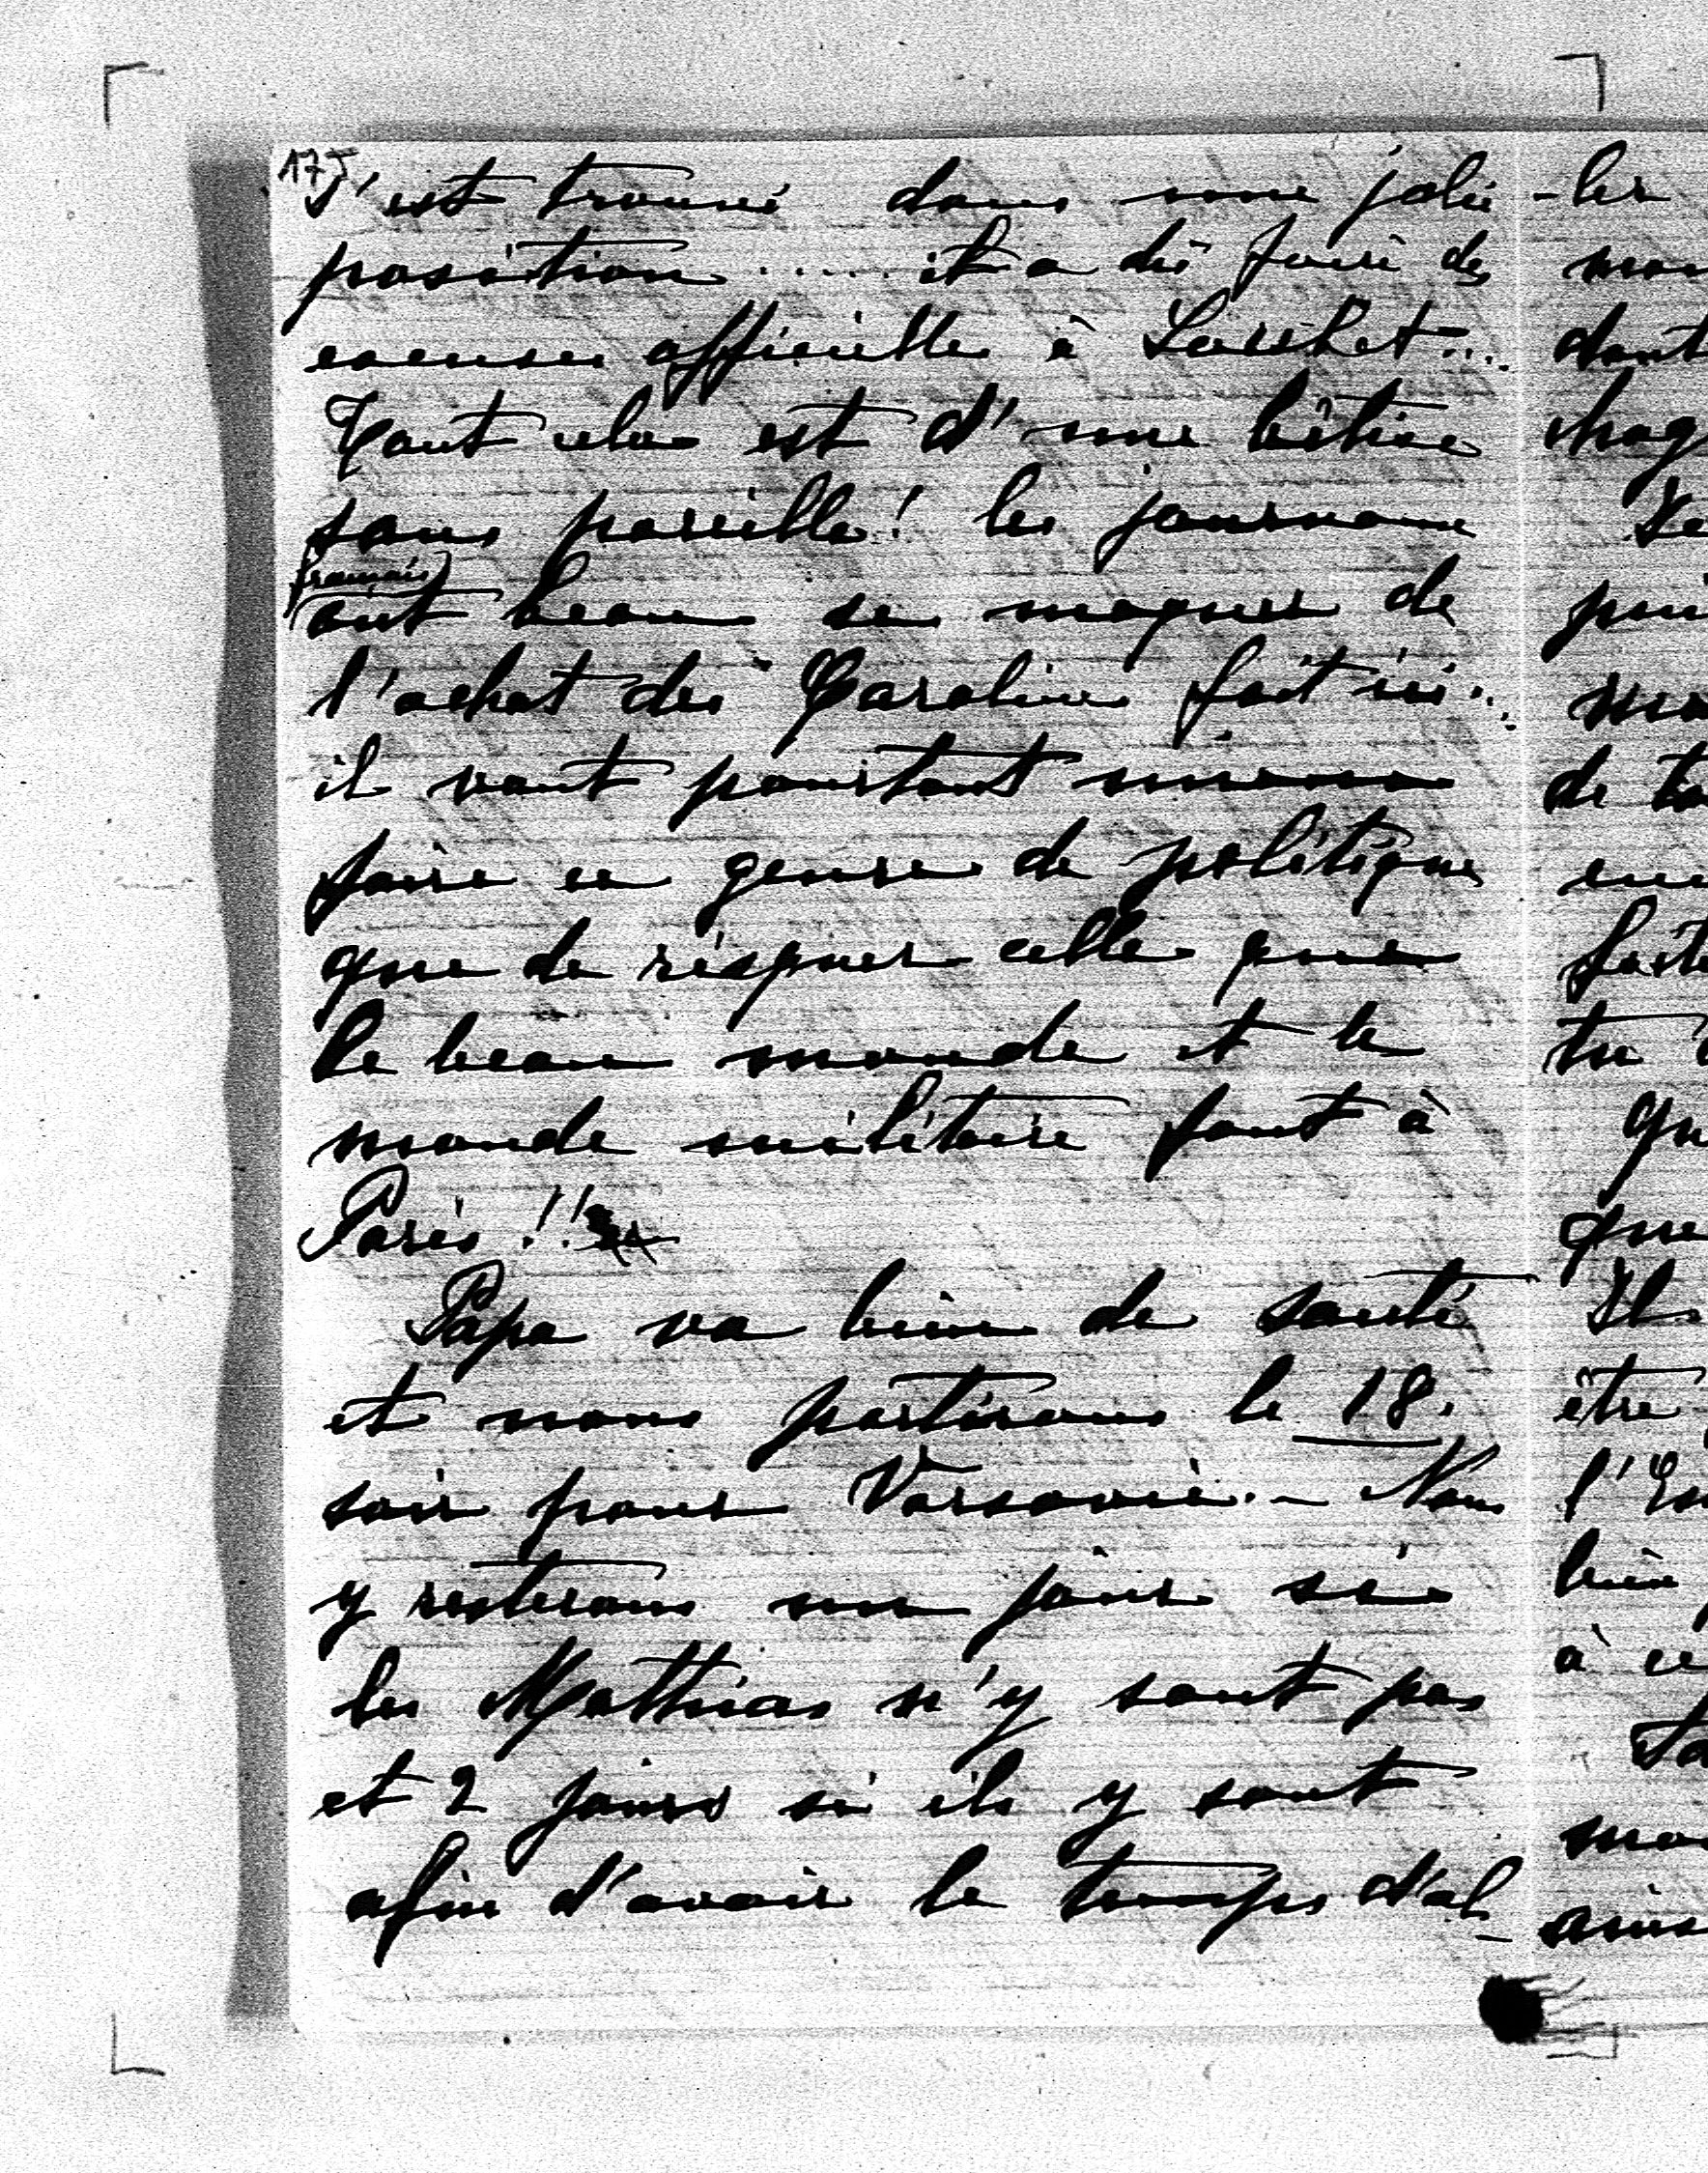 175
s'est trouvé dans une jolie
position ..... il a dû faire des
excuses officielles à
Tout cela est d'une bêtise
sans pareille! les journaux
français
ont beau se moquer de
l'achat des Carolines fait ici...
il vaut pourtant mieux
faire ce genre de politique
que de risquer celle que
le beau monde et le
monde militaire font à
Paris !!
Papa va bien de santé
et nous partirons le 18.
soir pour Varsovie. - Nous
y resterons un jour si
les Mathias n'y sont pas
et 2 jours si ils y sont
afin d'avoir le temps d'al-
-ler
dont
de
tu
que
Il
être
bien
à ce